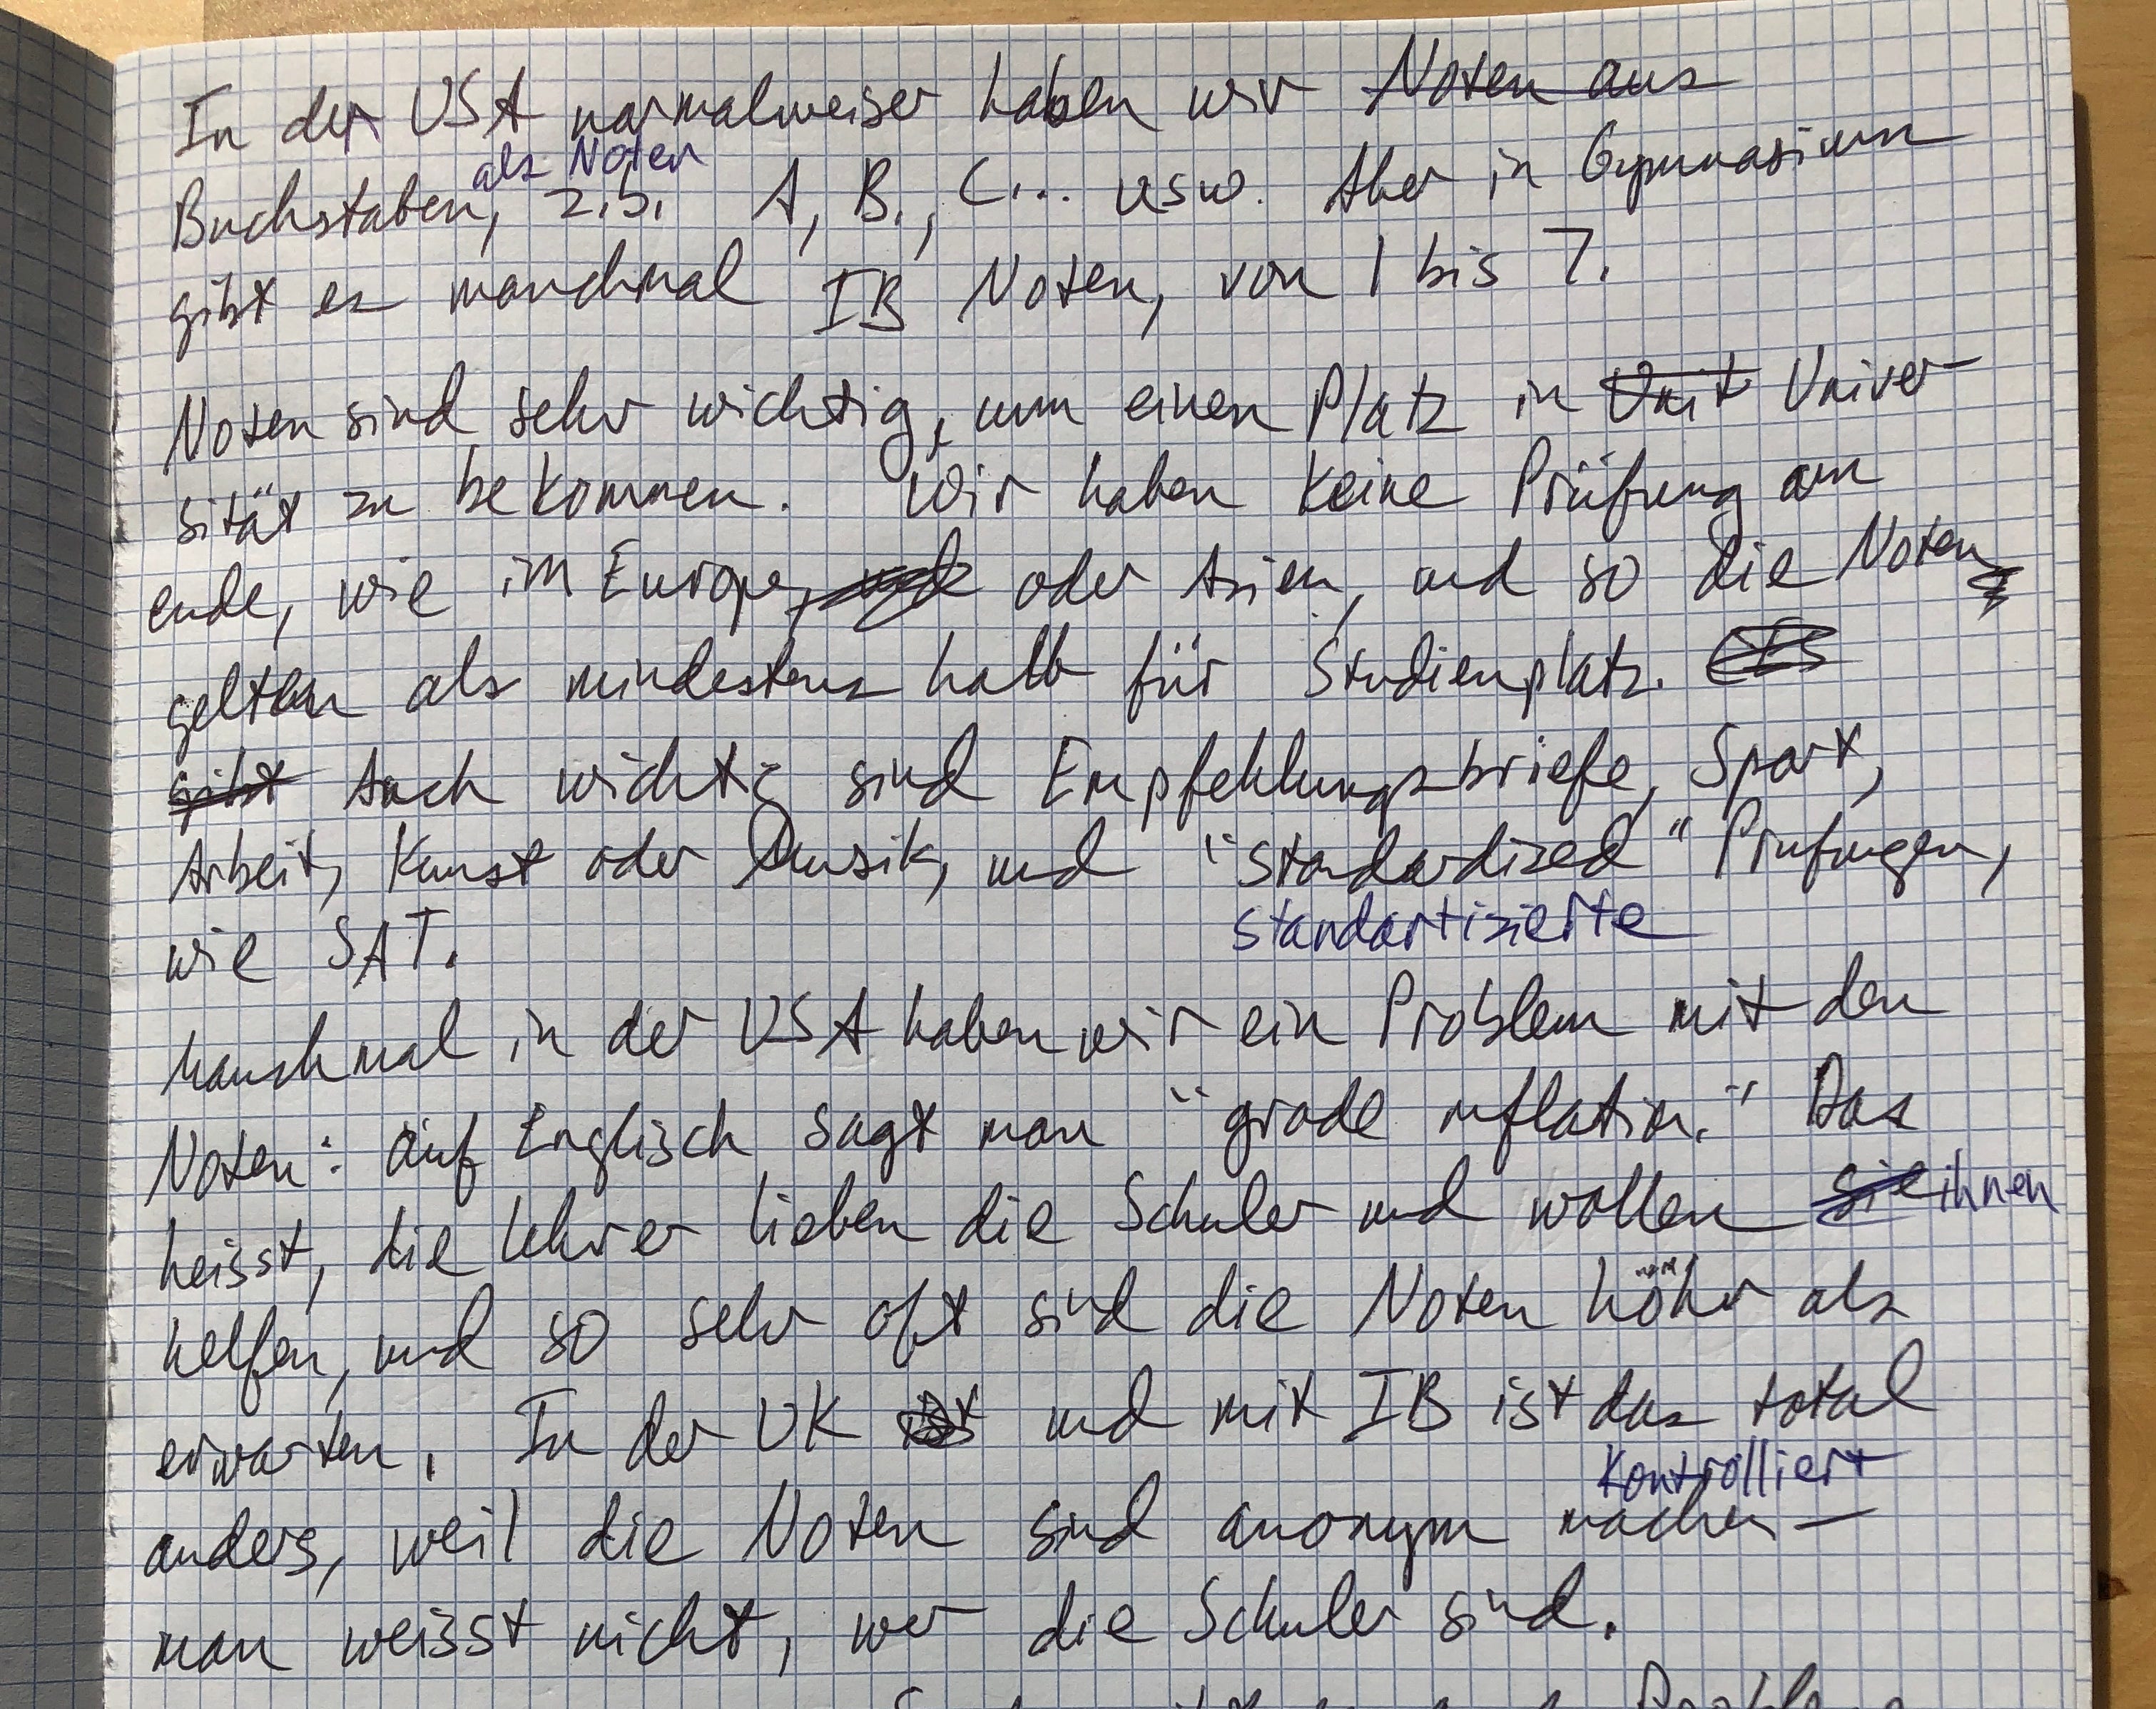 In der USA normalweiser haben wir Noten aus
als Noten
Buchstaben, z.b. A, B, C... usw. Aber in Gymnasium
gibt es manchmal IB Noten, von 1 bis 7.
Noten sind sehr wichtig, um einen Platz in Unit Univer-
sität zu bekommen. Wir haben keine Prüfung am
ende, wie im Europe, oder Asien, und so die Noten
gelten als mindestens halb für Studienplatz. Es
gibt Auch wichtig sind Empfehlungsbriefe, Sport,
Arbeit, Kunst oder Musik, und "standardized" Prufungen,
standartizierte
wie SAT.
Manchmal in der USA haben wir ein Problem mit den
Noten: auf Englisch sagt man "grade inflation." Das
heisst, die Lehrer lieben die Schuler und wollen sie ihnen
helfen, und so sehr oft sind die Noten höher als
erwarten. In der UK und mit IB ist das total
kontrolliert
anders, weil die Noten sind anonym machen —
man weisst nicht, wer die Schuler sind.